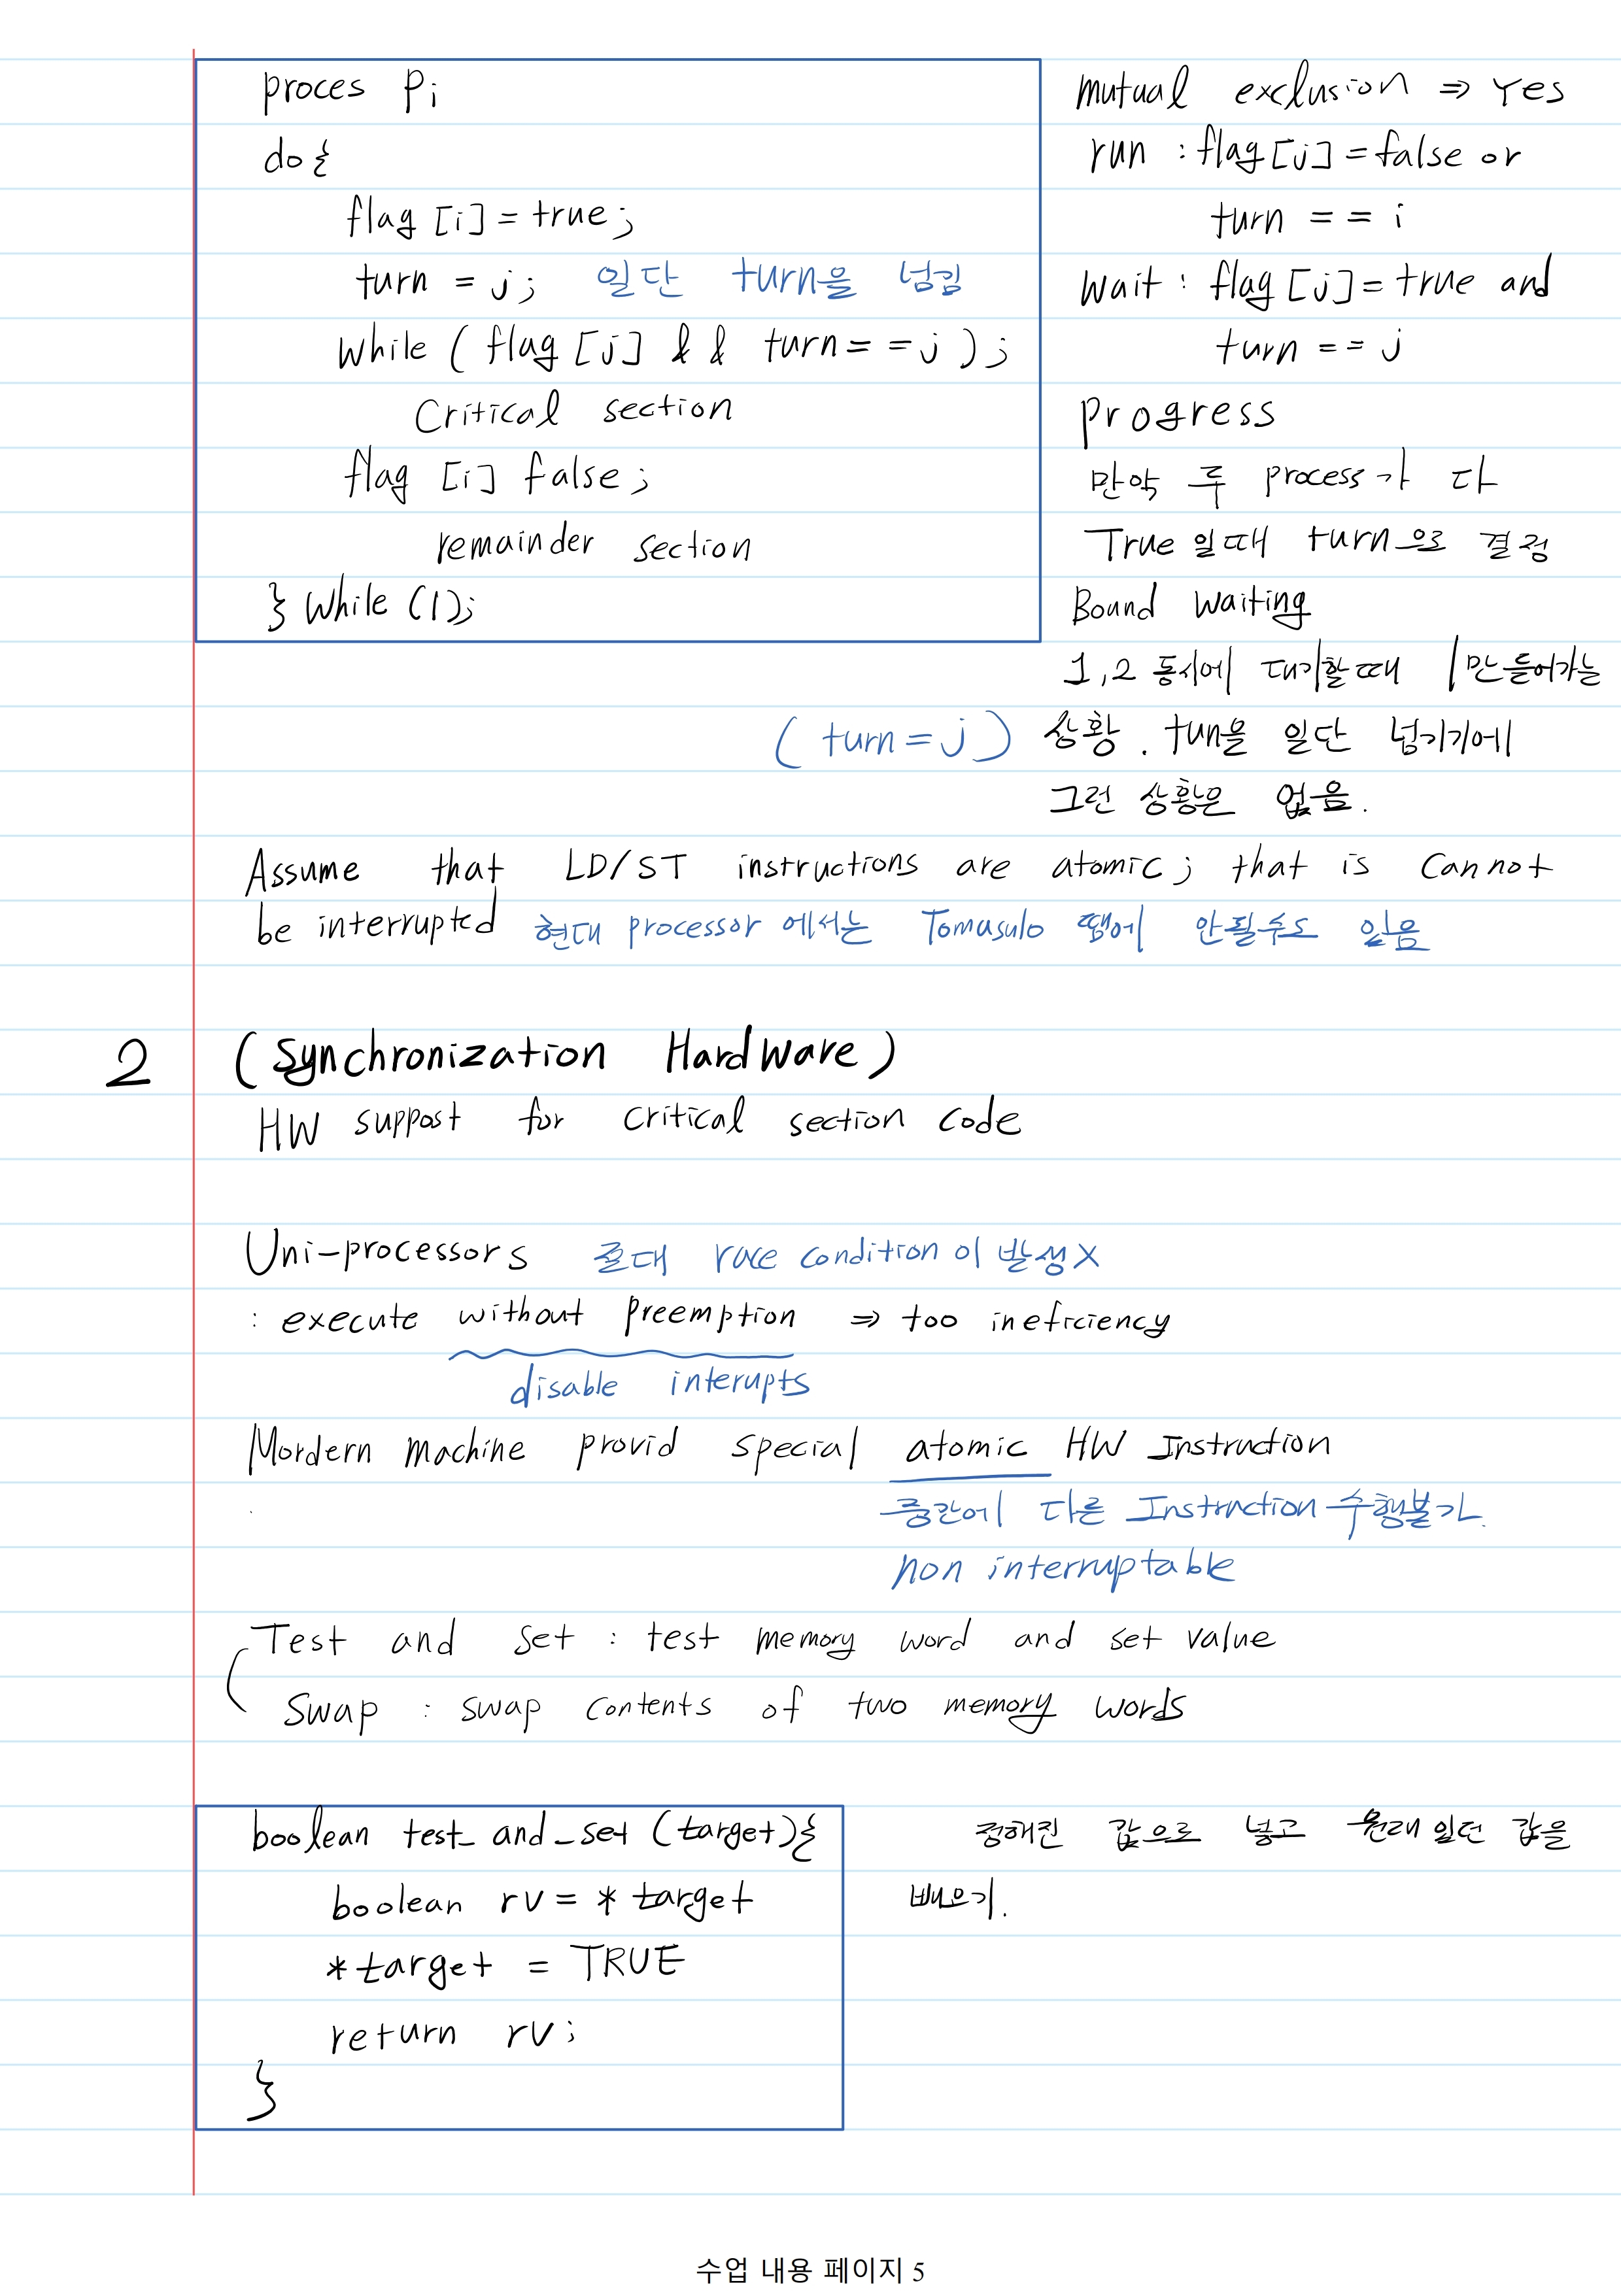 proces Pi
do {
flag [i] = true ;
turn = j ; 일단 turn을 넘김
while ( flag [j] && turn = = j ) ;
Critical section
flag [i] false ;
remainder section
} while (1);
mutual exclusion ⇒ Yes
run : flag [j] = false or
turn = = i
wait : flag [j] = true and
turn == j
Progress
만약 두 process가 다
True 일때 turn으로 결정
Bound waiting
1,2 동시에 대기할때 1만들어가는
( turn = j ) 상황 . tun을 일단 넘기기에
그런 상황은 없음.
Assume that LD/ST instructions are atomic ; that is cannot
be interrupted 현대 processor 에서는 Tomasulo 땜에 안될수도 있음
2 (Synchronization Hardware)
HW suppost for critical section code
Uni-processors 절대 race condition 이 발생X
: execute without preemption ⇒ too ineficiency
disable interupts
Mordern machine provid special atomic HW Instruction
중간에 다른 Instruction 수행불가.
non interruptable
Test and set : test memory word and set value
Swap : swap contents of two memory words
boolean test_and_set (target){
boolean rv = *target
*target = TRUE
return rv ;
}
정해진 값으로 넣고 원래 일던 값을
빼오기.
수업 내용 페이지 5